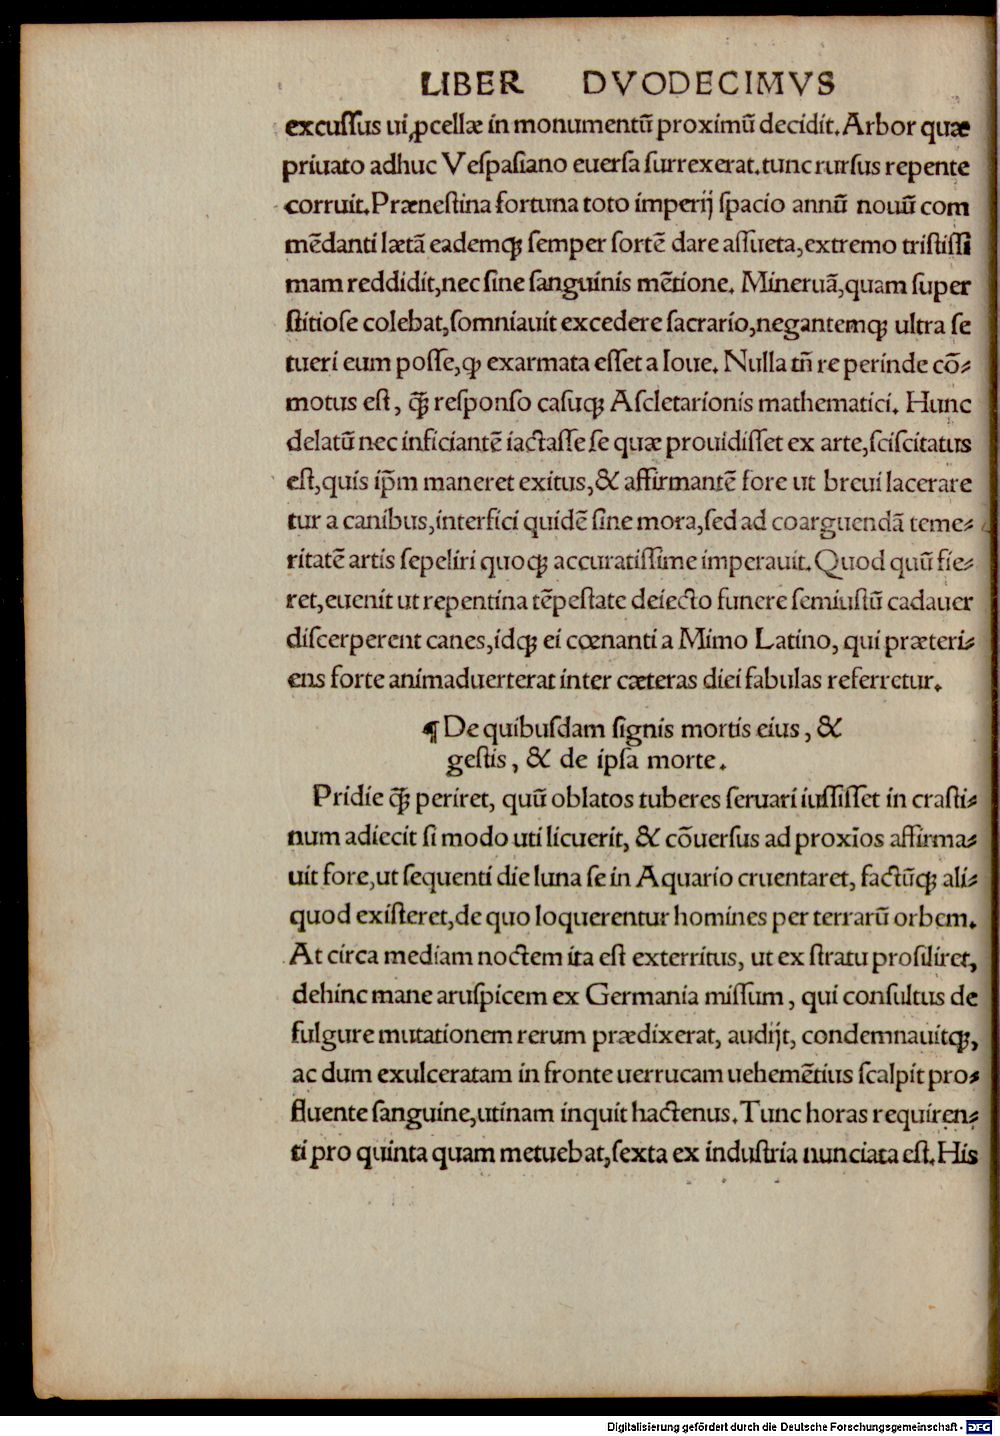 LIBER DVODECIMVS
excuſſus ui ꝓcellæ in monumentū proximū decidit. Arbor quæ
priuato adhuc Veſpaſiano euerſa ſurrexerat. tunc rurſus repente
corruit. Præneſtina fortuna toto imperij ſpacio annū nouū com
mēdanti lætā eademqꝫ ſemper ſortē dare aſſueta, extremo triſtiſſi
mam reddidit, nec ſine ſanguinis mētione. Mineruā, quam ſuper
ſtitioſe colebat, ſomniauit excedere ſacrario, negantemqꝫ ultra ſe
tueri eum poſſe, ꝙ exarmata eſſet a Ioue. Nulla tñ re perinde cō⸗
motus eſt, q̃ꝫ reſponſo caſuqꝫ Aſcletarionis mathematici. Hunc
delatū nec inficiantē iactaſſe ſe quæ prouidiſſet ex arte, ſciſcitatus
eſt, quis ip̃m maneret exitus, & affirmantē fore ut breui lacerare
tur a canibus, interfici quidē ſine mora, ſed ad coarguendā teme⸗
ritatē artis ſepeliri quoqꝫ accuratiſſime imperauit. Quod quū fie⸗
ret, euenit ut repentina tēpeſtate deiecto funere ſemiuſtū cadauer
diſcerperent canes, idqꝫ ei cœnanti a Mimo Latino, qui præteri⸗
ens forte animaduerterat inter cæteras diei fabulas referretur.
¶ De quibuſdam ſignis mortis eius, &
geſtis, & de ipſa morte.
Pridie q̃ꝫ periret, quū oblatos tuberes ſeruari iuſſiſſet in craſti⸗
num adiecit ſi modo uti licuerit, & cōuerſus ad proxīos affirma⸗
uit fore, ut ſequenti die luna ſe in Aquario cruentaret, factūqꝫ ali⸗
quod exiſteret, de quo loquerentur homines per terrarū orbem.
At circa mediam noctem ita eſt exterritus, ut ex ſtratu proſiliret,
dehinc mane aruſpicem ex Germania miſſum, qui conſultus de
fulgure mutationem rerum prædixerat, audijt, condemnauitqꝫ,
ac dum exulceratam in fronte uerrucam uehemētius ſcalpit pro⸗
fluente ſanguine, utinam inquit hactenus. Tunc horas requiren⸗
ti pro quinta quam metuebat, ſexta ex induſtria nunciata eſt. His
Digitalisierung gefördert durch die Deutsche Forschungsgemeinschaft - DFG